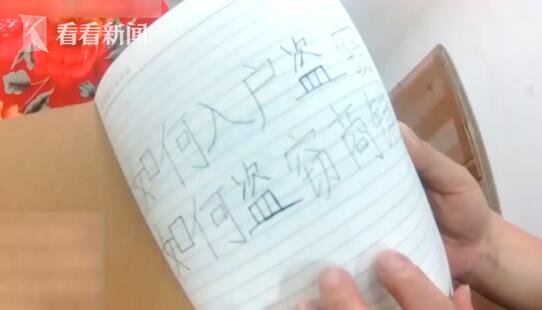 看看新闻
如何入户盗
如何盗窃商